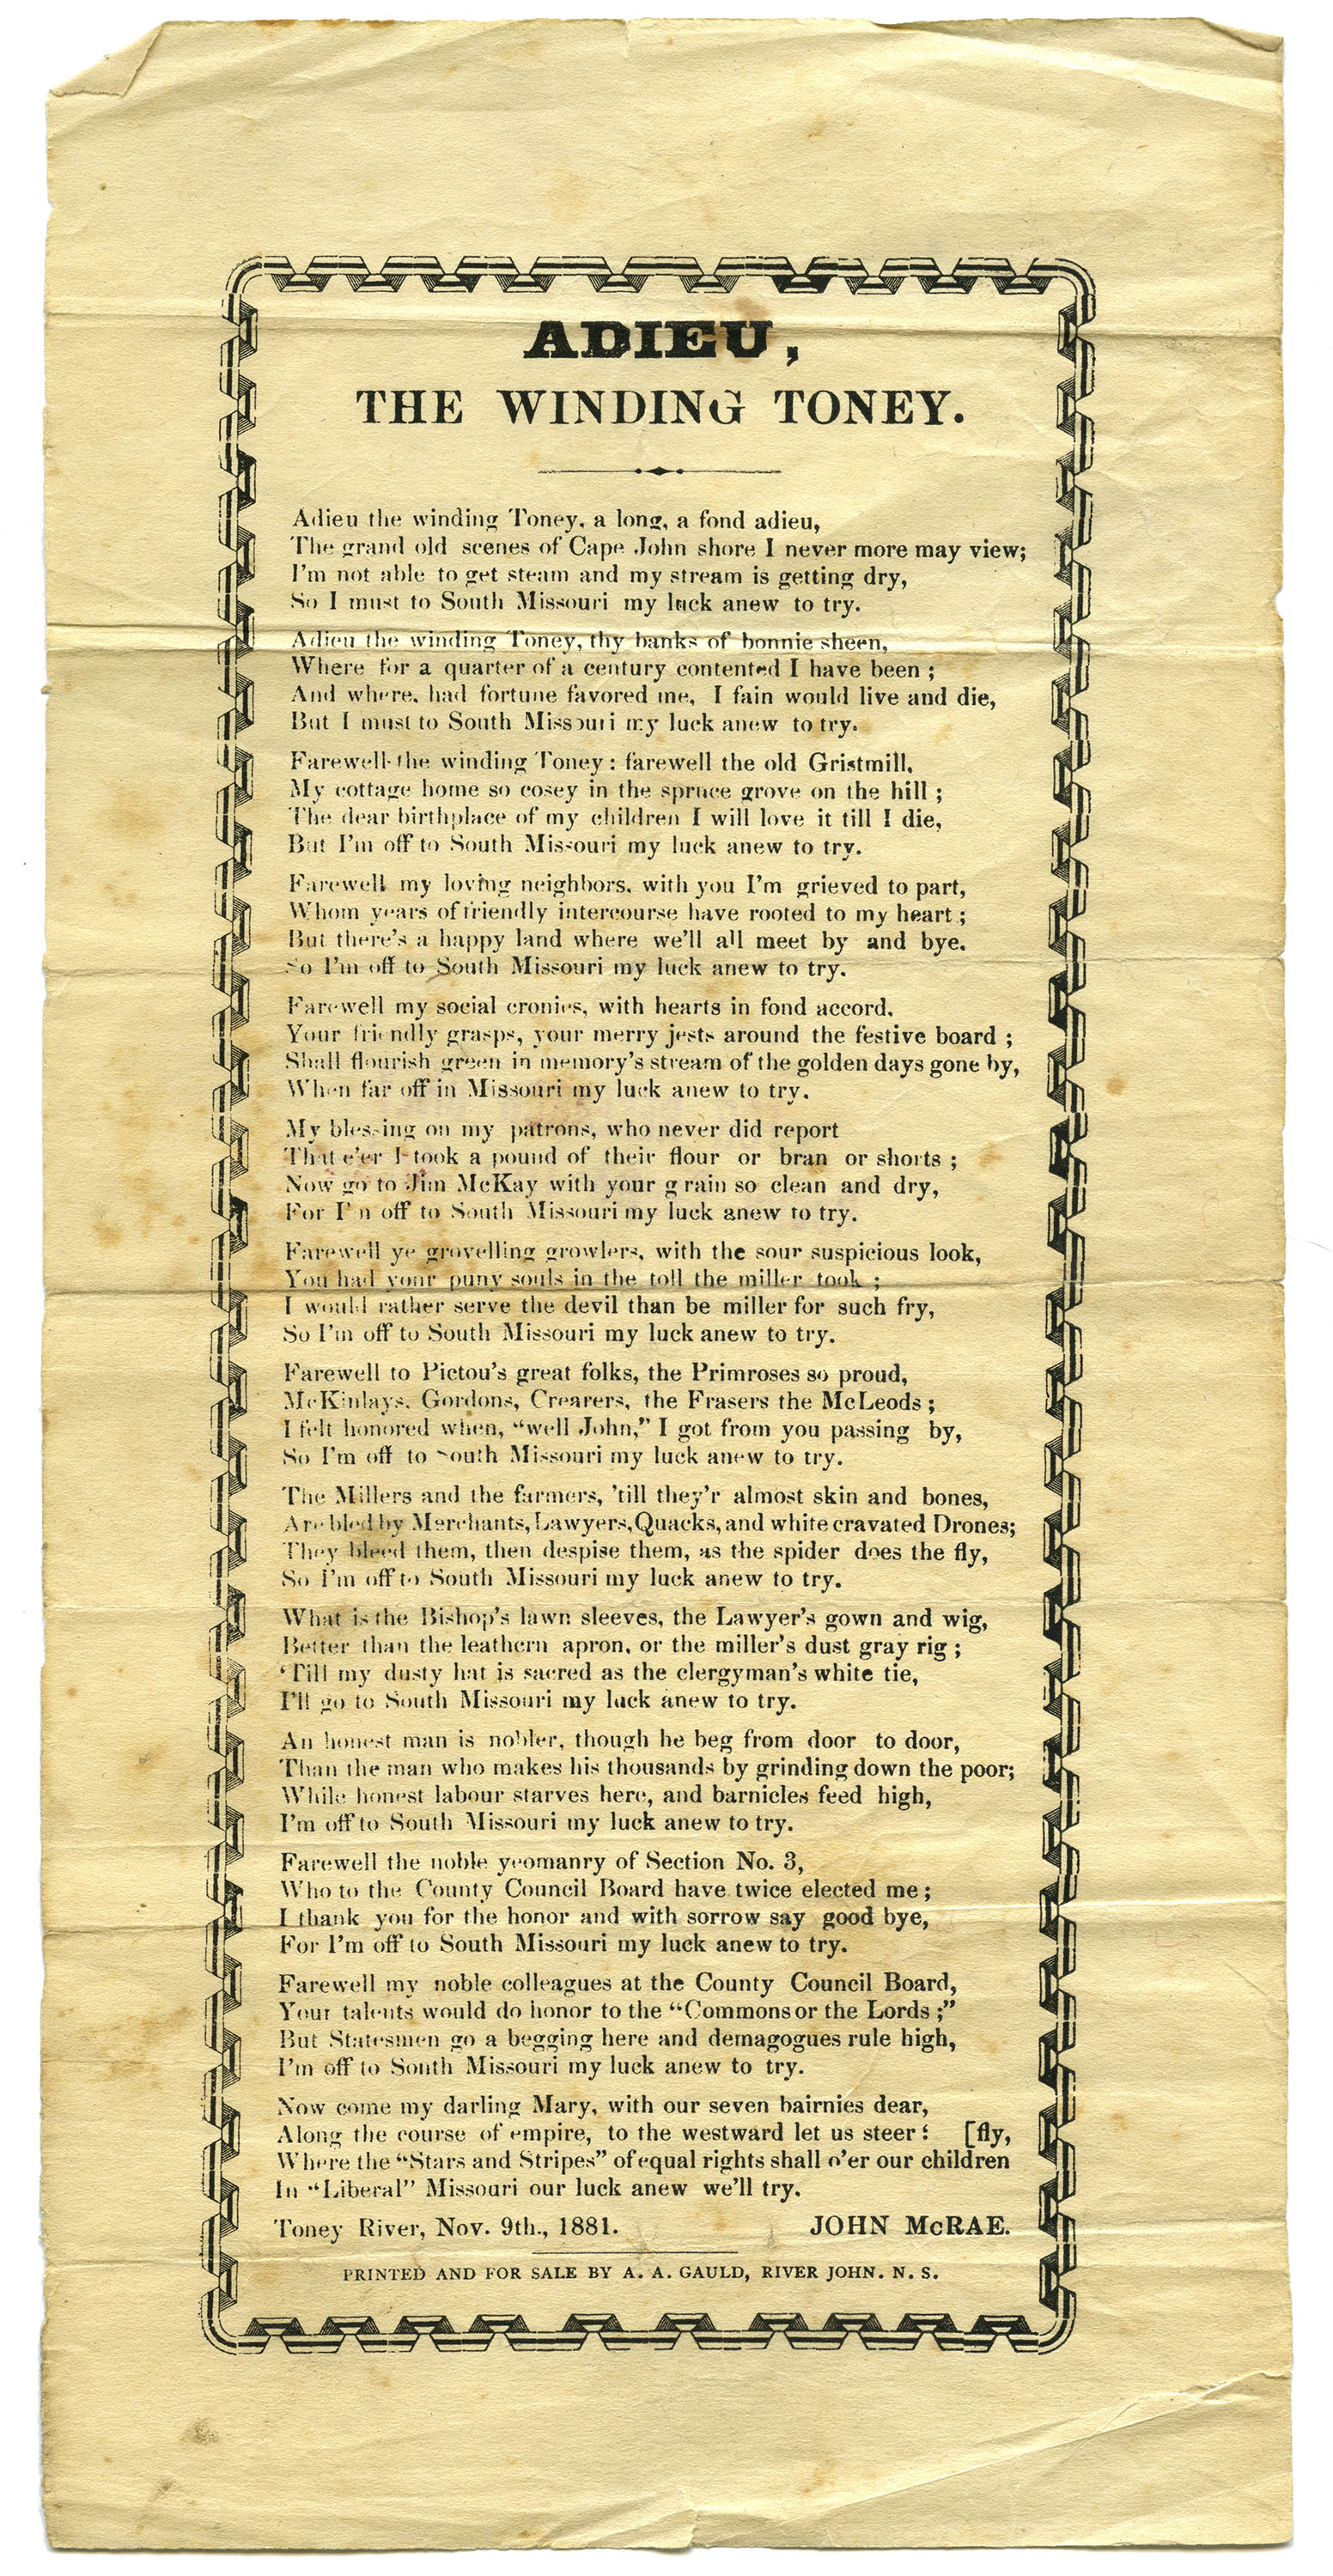 ADIEU,
THE WINDING TONEY.
Adieu the winding Toney, a long, a fond adieu,
The grand old scenes of Cape John shore I never more may view;
I'm not able to get steam and my stream is getting dry,
So I must to South Missouri my luck anew to try.
Adieu the winding Toney, thy banks of bonnie sheen,
Where for a quarter of a century contented I have been ;
And where, had fortune favored me, I fain would live and die,
But I must to South Missouri my luck anew to try.
Farewell the winding Toney : farewell the old Gristmill,
My cottage home so cosey in the spruce grove on the hill ;
The dear birthplace of my children I will love it till I die,
But I'm off to South Missouri my luck anew to try.
Farewell my loving neighbors, with you I'm grieved to part,
Whom years of friendly intercourse have rooted to my heart ;
But there's a happy land where we'll all meet by and bye.
So I'm off to South Missouri my luck anew to try.
Farewell my social cronies, with hearts in fond accord,
Your friendly grasps, your merry jests around the festive board ;
Shall flourish green in memory's stream of the golden days gone by,
When far off in Missouri my luck anew to try.
My blessing on my patrons, who never did report
That e'er I took a pound of their flour or bran or shorts ;
Now go to Jim McKay with your grain so clean and dry,
For I'm off to South Missouri my luck anew to try.
Farewell ye grovelling growlers, with the sour suspicious look,
You had your puny souls in the toll the miller took ;
I would rather serve the devil than be miller for such fry,
So I'm off to South Missouri my luck anew to try.
Farewell to Pictou's great folks, the Primroses so proud,
McKinlays, Gordons, Crearers, the Frasers the McLeods ;
I felt honored when, "well John," I got from you passing by,
So I'm off to South Missouri my luck anew to try.
The Millers and the farmers, 'till they'r almost skin and bones,
Are bled by Merchants, Lawyers, Quacks, and white cravated Drones;
They bleed them, then despise them, as the spider does the fly,
So I'm off to South Missouri my luck anew to try.
What is the Bishop's lawn sleeves, the Lawyer's gown and wig,
Better than the leathern apron, or the miller's dust gray rig ;
'Till my dusty hat is sacred as the clergyman's white tie,
I'll go to South Missouri my luck anew to try.
An honest man is nobler, though he beg from door to door,
Than the man who makes his thousands by grinding down the poor;
While honest labour starves here, and barnicles feed high,
I'm off to South Missouri my luck anew to try.
Farewell the noble yeomanry of Section No. 3,
Who to the County Council Board have twice elected me ;
I thank you for the honor and with sorrow say good bye,
For I'm off to South Missouri my luck anew to try.
Farewell my noble colleagues at the County Council Board,
Your talents would do honor to the "Commons or the Lords ;"
But Statesmen go a begging here and demagogues rule high,
I'm off to South Missouri my luck anew to try.
Now come my darling Mary, with our seven bairnies dear,
Along the course of empire, to the westward let us steer : [fly,
Where the "Stars and Stripes" of equal rights shall o'er our children
In "Liberal" Missouri our luck anew we'll try.
Toney River, Nov. 9th., 1881. JOHN McRAE.
PRINTED AND FOR SALE BY A. A. GAULD, RIVER JOHN. N. S.